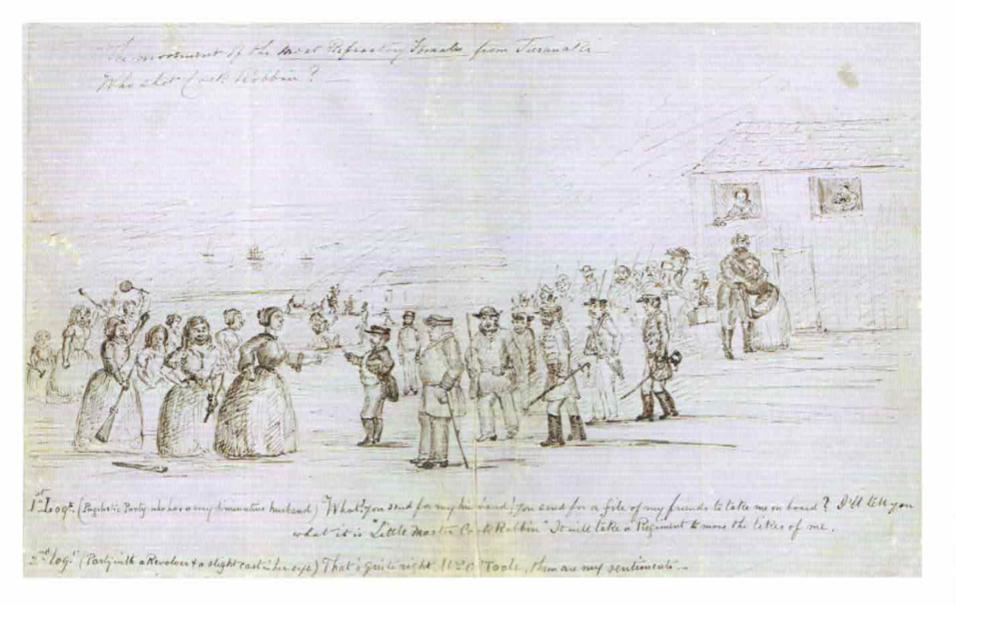 The movement of the most Refractory Females from Taranaki
Who shot Cock Robbin?
1st Logt. (Pugilistic Party who has a very diminutive husband) "What! you send for my husband! you send for a file of my friends to take me on board? I'll tell you
what it is "Little Master Cock Robbin" It will take a Regiment to move the likes of me.
2nd log! (Party with a Revolver & a slight cast in her eye) That's quite right, O'Toole, them are my sentiments